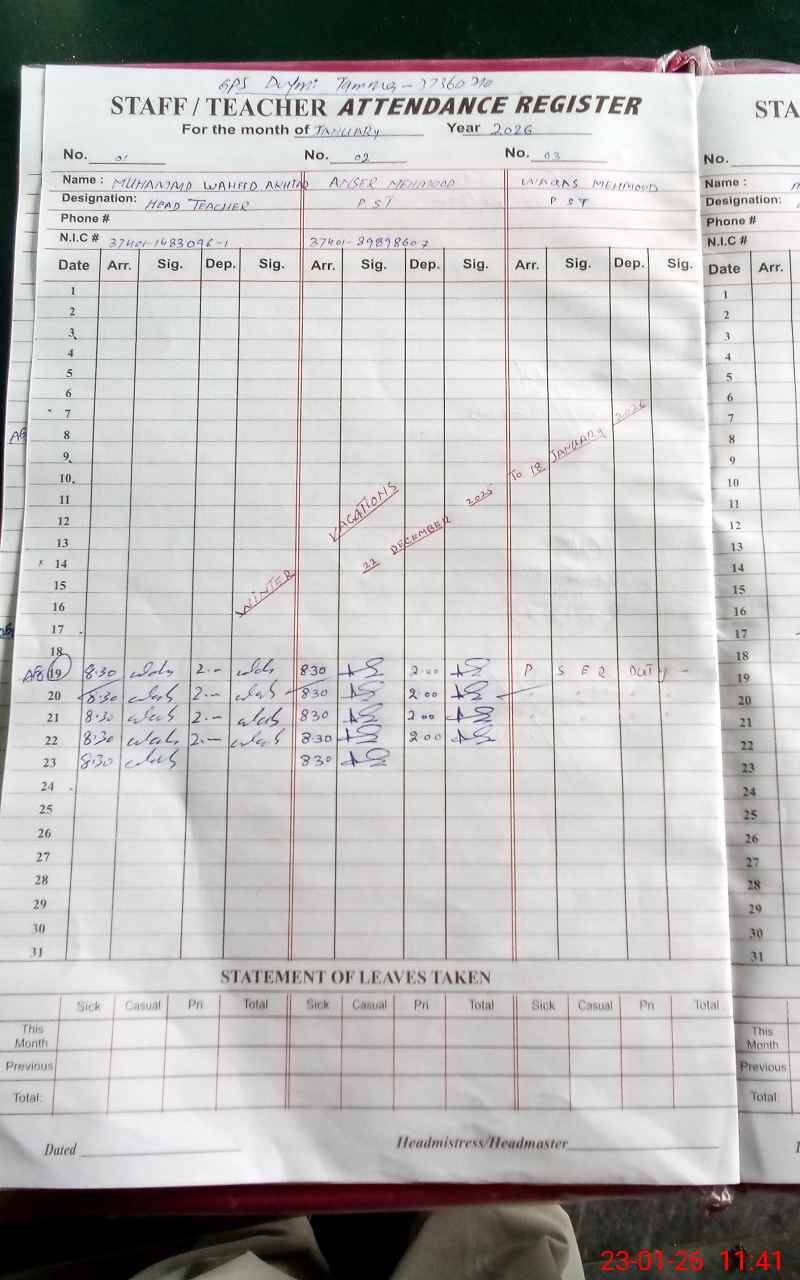 GPS Tamma - 37360210
STAFF / TEACHER ATTENDANCE REGISTER
For the month of JANUARY Year 2026
No. 01 No. 02 No. 03
Name : MUHAMMAD WAHEED AKHTAR ANSER MEHMOOD WAQAS MEHMOOD
Designation: HEAD TEACHER P S T P S T
Phone #
N.I.C # 37401-1483096-1 37401-89898607
Date Arr. Sig. Dep. Sig. Arr. Sig. Dep. Sig. Arr. Sig. Dep. Sig.
1
2
3
4
5
6
7
8
9
10
11
12
13
14
15
16
17
18
WINTER VACATIONS
22 DECEMBER 2025 To 18 JANUARY 2026
19 8:30 2.— 830 2.00 P S E R DUTY -
20 8:30 2.— 830 2.00
21 8:30 2.— 830 2.00
22 8:30 2.— 8.30 2.00
23 8:30 830
24
25
26
27
28
29
30
31
STATEMENT OF LEAVES TAKEN
Sick Casual Pri Total Sick Casual Pri Total Sick Casual Pri Total
This Month
Previous
Total:
Dated Headmistress/Headmaster
STA
No.
Name :
Designation:
Phone #
N.I.C #
Date Arr.
1
2
3
4
5
6
7
8
9
10
11
12
13
14
15
16
17
18
19
20
21
22
23
24
25
26
27
28
29
30
31
This Month
Previous
Total:
23-01-26 11:41